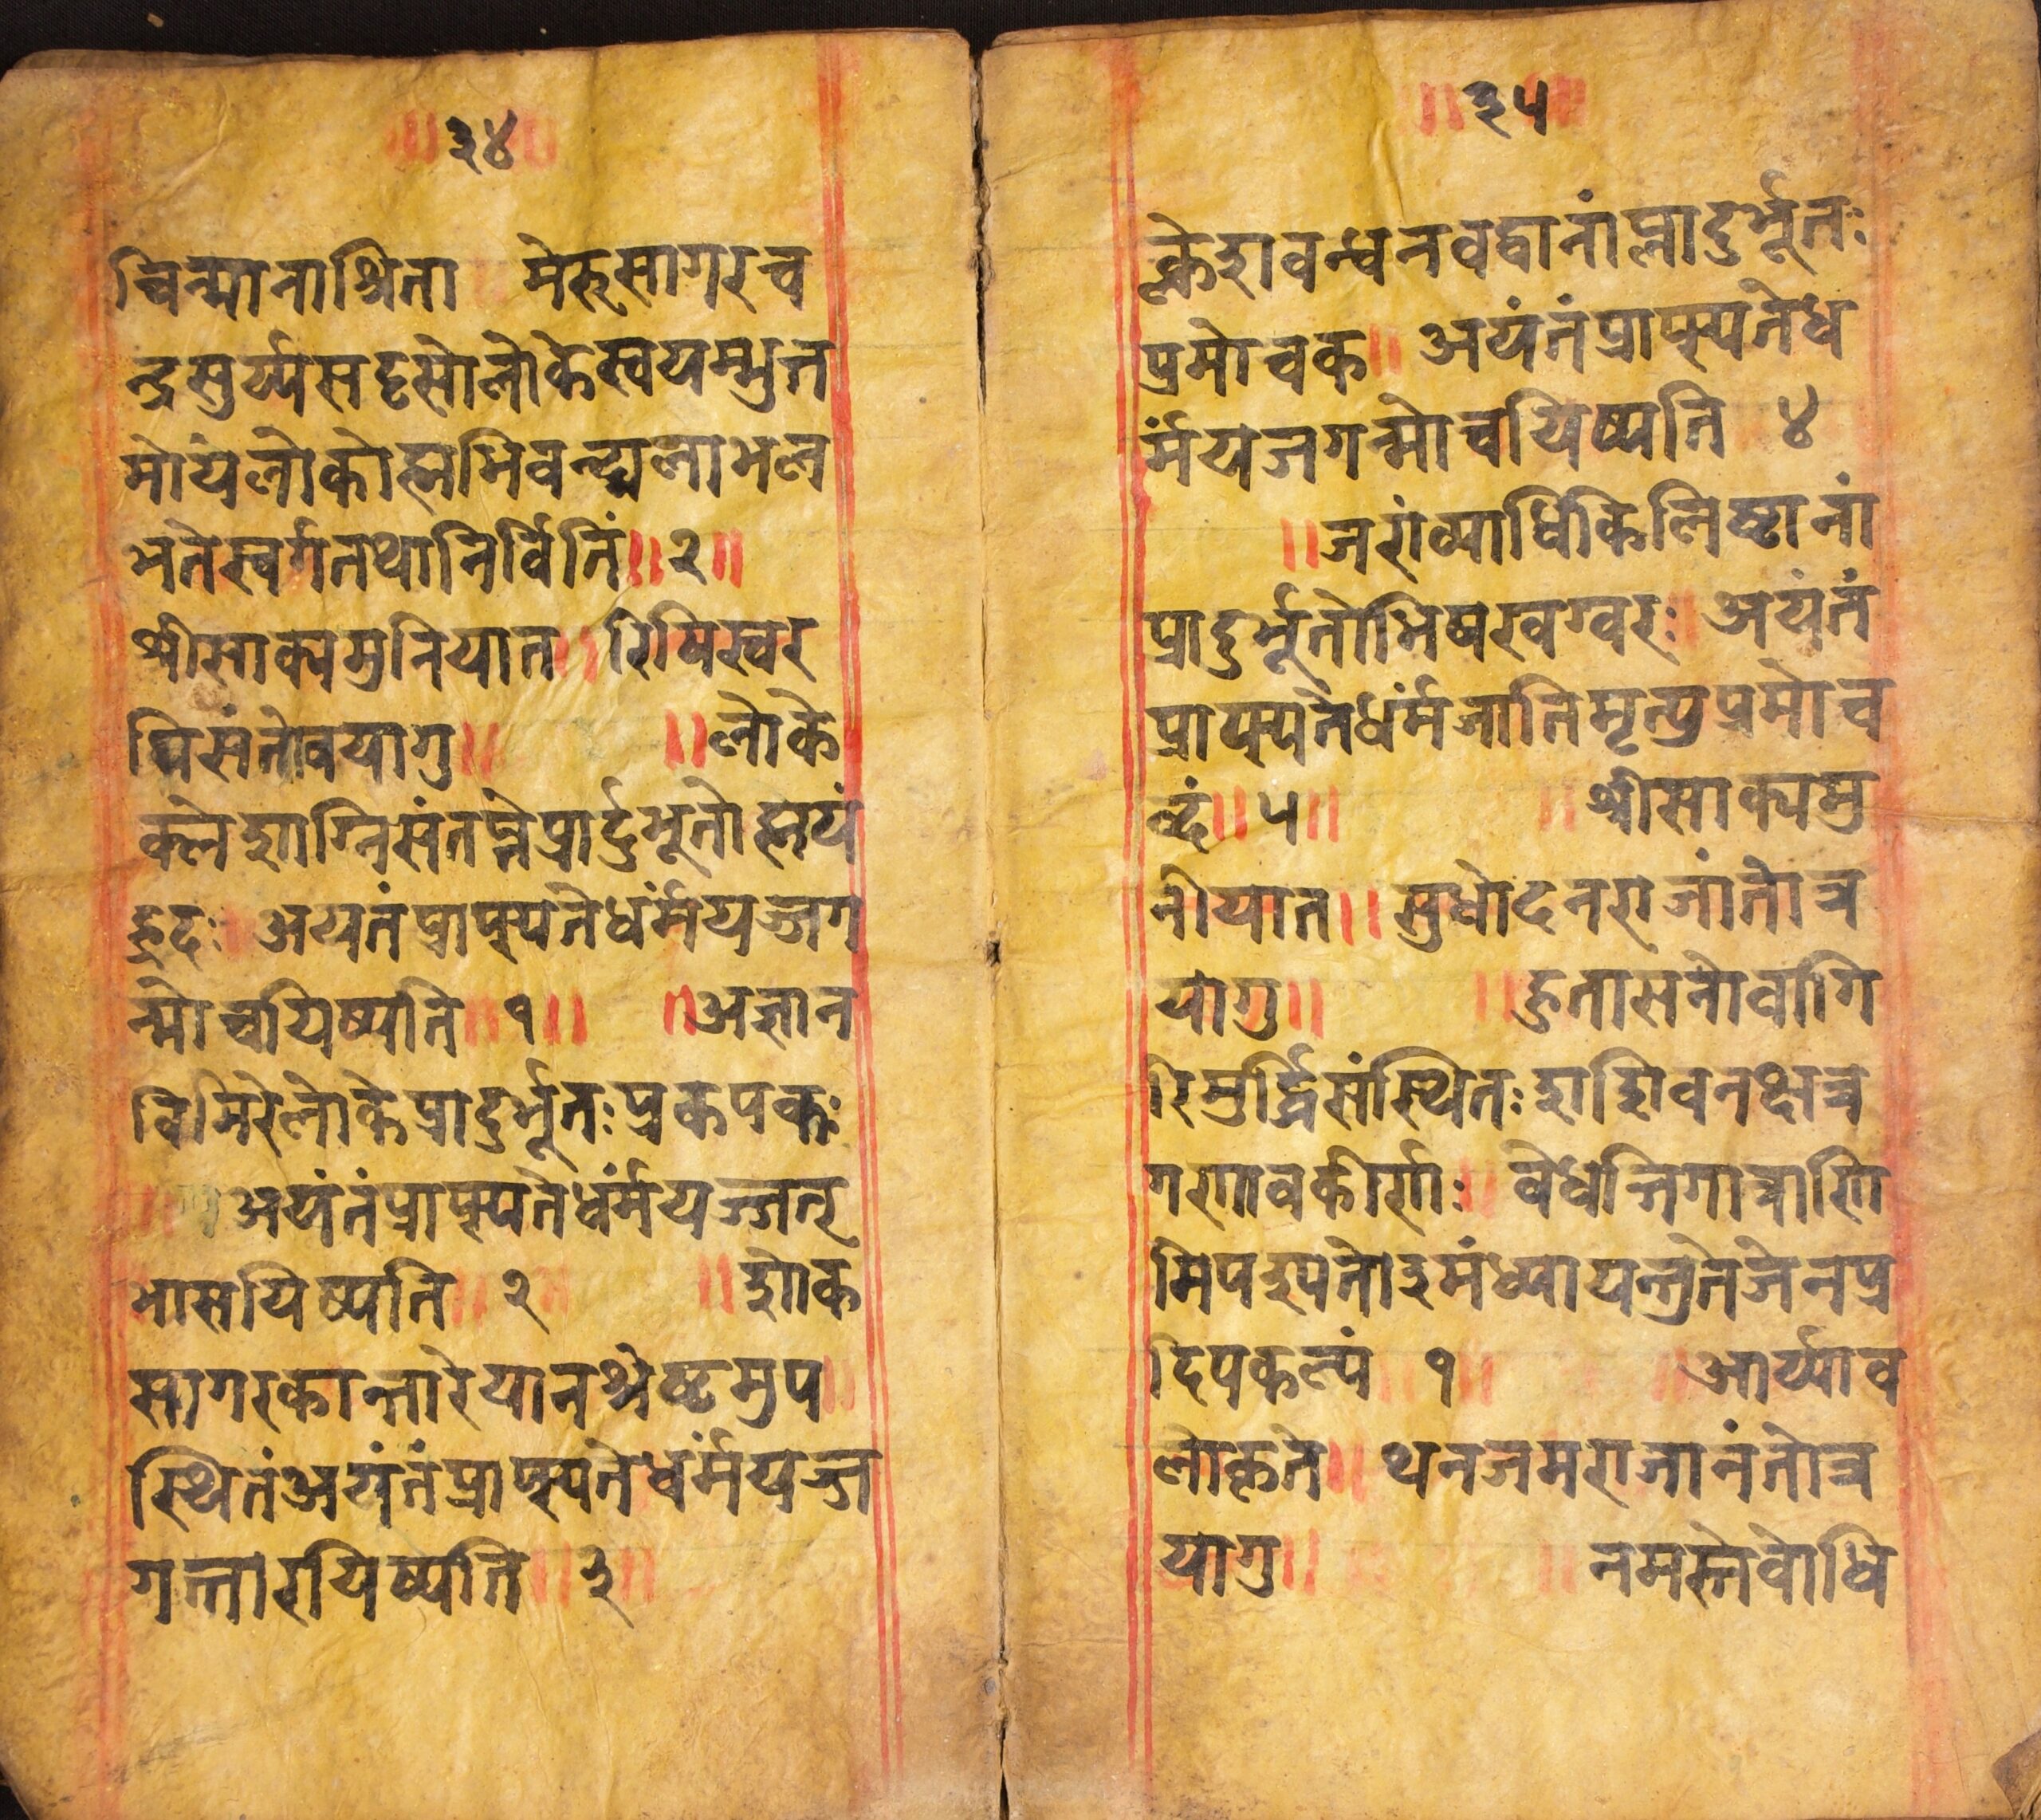 ३४
चिन्मानाश्रिता मेरुसागरच
न्द्रसुर्य्यसदृसोलोकेस्वयम्भुत
मोयंलोकोह्मभिवन्द्यलाभल
भतेस्वर्गतथानिर्वितिं॥२॥
श्रीसाक्यमुनियात॥रिषिस्वर
पिसंतोवयागु॥ ॥लोके
क्लेशाग्निसंतप्तेप्रार्दुभूतोह्मयं
ह्रदः अयतंप्राप्स्यतेधंर्मयज्जग
न्मोचयिष्यति॥१॥ ॥अज्ञान
तिमिरेलोकेप्रादुर्भूतःप्रकपकः
॥ अयंतंप्राप्स्यतेधंर्मयज्जत्
भासयिष्यति॥२॥ ॥शोक
सागरकान्तारेयानश्रेष्टमुप॥
स्थितंअयंतंप्राप्स्यतेधंर्मयज्ज
गत्तारयिष्यति॥३॥
॥३५॥
क्लेशवन्धनवद्वानांप्रादुर्भूतः
प्रमोचक॥अयंतंप्राप्स्यतेध
र्मंयजगन्मोचयिष्यति ४
॥जरांव्याधिकिलिष्टानां
प्रादुर्भूतोभिषखग्वरः॥अयंतं
प्राप्स्यतेधंर्मजातिमृत्युप्रमोच
न्दं॥५॥ ॥श्रीसाक्यमु
नीयात॥सुधोदनराजांतोत्र
यागु॥ ॥हुतासनोवागि
रिमुर्द्ध्निसंस्थितःशशिवनक्षत्र
गणावकीर्णः॥वेधन्तिगात्राणि
मिपश्यतोइमंध्यायन्तुतेजेनप्र
दिपकल्पं॥१॥ ॥आर्य्याव
लोकृते॥थनजमराजानंतोत्र
यागु॥ ॥नमस्तेवोधि